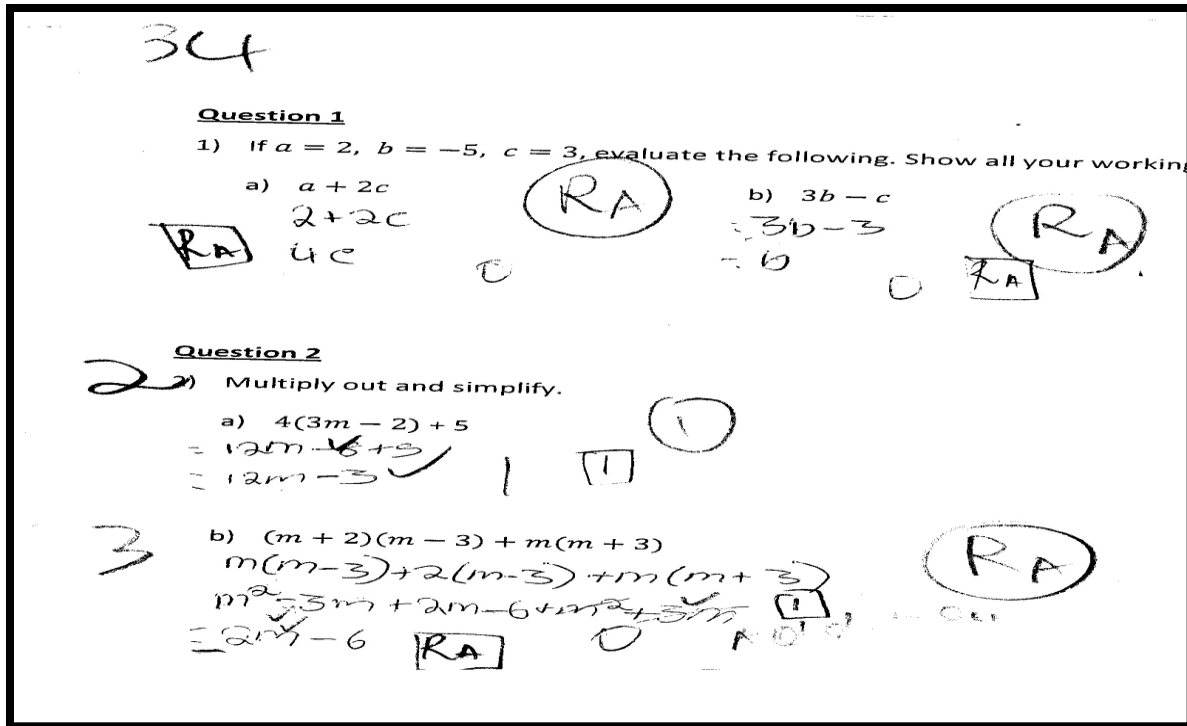 34
Question 1
1) If a = 2, b = −5, c = 3, evaluate the following. Show all your working
a) a + 2c
RA
b) 3b − c
RA
2+2c
= 3b-3
RA
4c
0
= b
0
RA
Question 2
2
2) Multiply out and simplify.
a) 4(3m − 2) + 5
1
= 12m-8+5
= 12m-3
1
1
3
b) (m + 2)(m − 3) + m(m + 3)
RA
m(m-3)+2(m-3)+m(m+3)
m²-3m+2m-6+m²+3m
1
= 2m-6
RA
0